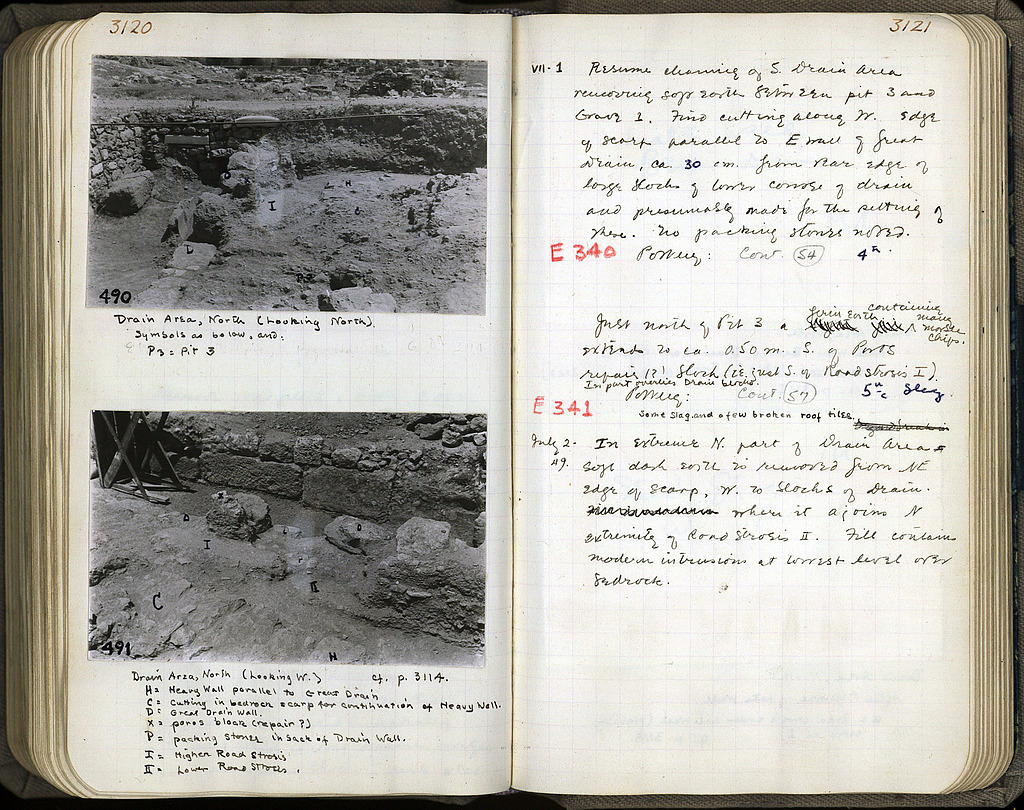 3120
490
Drain Area, North (Looking North).
Symbols as below, and:
P3 = Pit 3
491
Drain Area, North (Looking W.) cf. p. 3114.
H = Heavy Wall parallel to Great Drain
C = Cutting in bedrock scarp for continuation of Heavy Wall.
D = Great Drain Wall.
X = poros block (repair?)
P = packing stones in back of Drain Wall.
I = Higher Road Strosis
II = Lower Road Strosis.
3121
VII-1 Resume cleaning of S. Drain Area
removing soft earth between pit 3 and
Grave 1. Find cutting along W. edge
of scarp parallel to E wall of Great
Drain, ca. 30 cm. from rear edge of
large blocks of lower course of drain
and presumably made for the setting of
these. No packing stones noted.
E 340 Pottery: Cont. 54 4th
Just north of Pit 3 a firm earth containing many marble chips.
extends to ca. 0.50 m. S. of Poros
repair (?) block (i.e. just S. of Road Strosis I).
In part overlies Drain blocks.
E 341 Pottery: Cont. 57 5th c
Some slag and a few broken roof tiles.
July 2. In extreme N. part of Drain Area
49. soft dark earth is removed from NE
edge of scarp, W. to blocks of drain.
where it ajoins N
extremity of Road Strosis II. Fill contain
modern intrusions at lowest level over
bedrock.